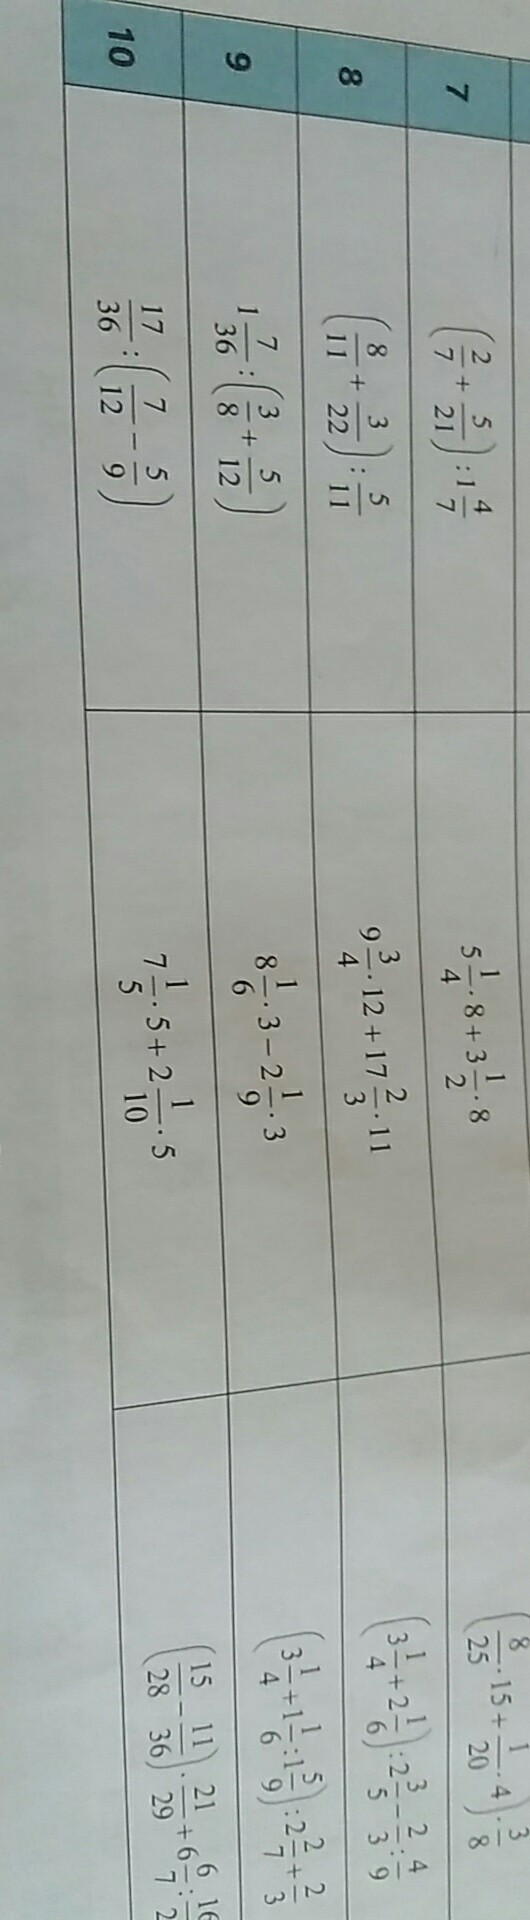 7 (2/7 + 5/21) : 1 4/7 5 1/4 · 8 + 3 1/2 · 8 (8/25 · 15 + 1/20 · 4) · 3/8
8 (8/11 + 3/22) : 5/11 9 3/4 · 12 + 17 2/3 · 11 (3 1/4 + 2 1/6) : 2 3/5 − 2/3 : 4/9
9 1 7/36 : (3/8 + 5/12) 8 1/6 · 3 − 2 1/9 · 3 (3 1/4 + 1 1/6 : 1 5/9) : 2 2/7 + 2/3
10 17/36 : (7/12 − 5/9) 7 1/5 · 5 + 2 1/10 · 5 (15/28 − 11/36) · 21/29 + 6 6/7 :